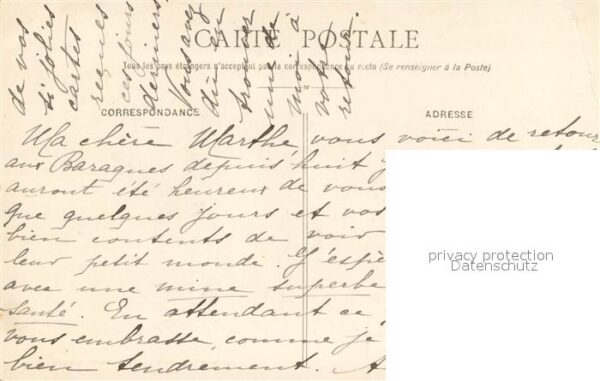 CARTE POSTALE
Tous les pays étrangers n'acceptent pas la correspondance au recto (Se renseigner à la Poste)
CORRESPONDANCE
ADRESSE
Ma chère Marthe, vous voici de retour
aux Baraques depuis huit
auront été heureux de vous
que quelques jours et vos
bien contents de voir
leur petit monde. J'espè
avec une mine superbe
santé. En attendant ce
vous embrasse, comme je
bien tendrement. A
de vos
si jolies
cartes
reçues
ces jours
derniers.
Vous avez
dû en
trouver
une de
moi à
votre
retour.
privacy protection
Datenschutz